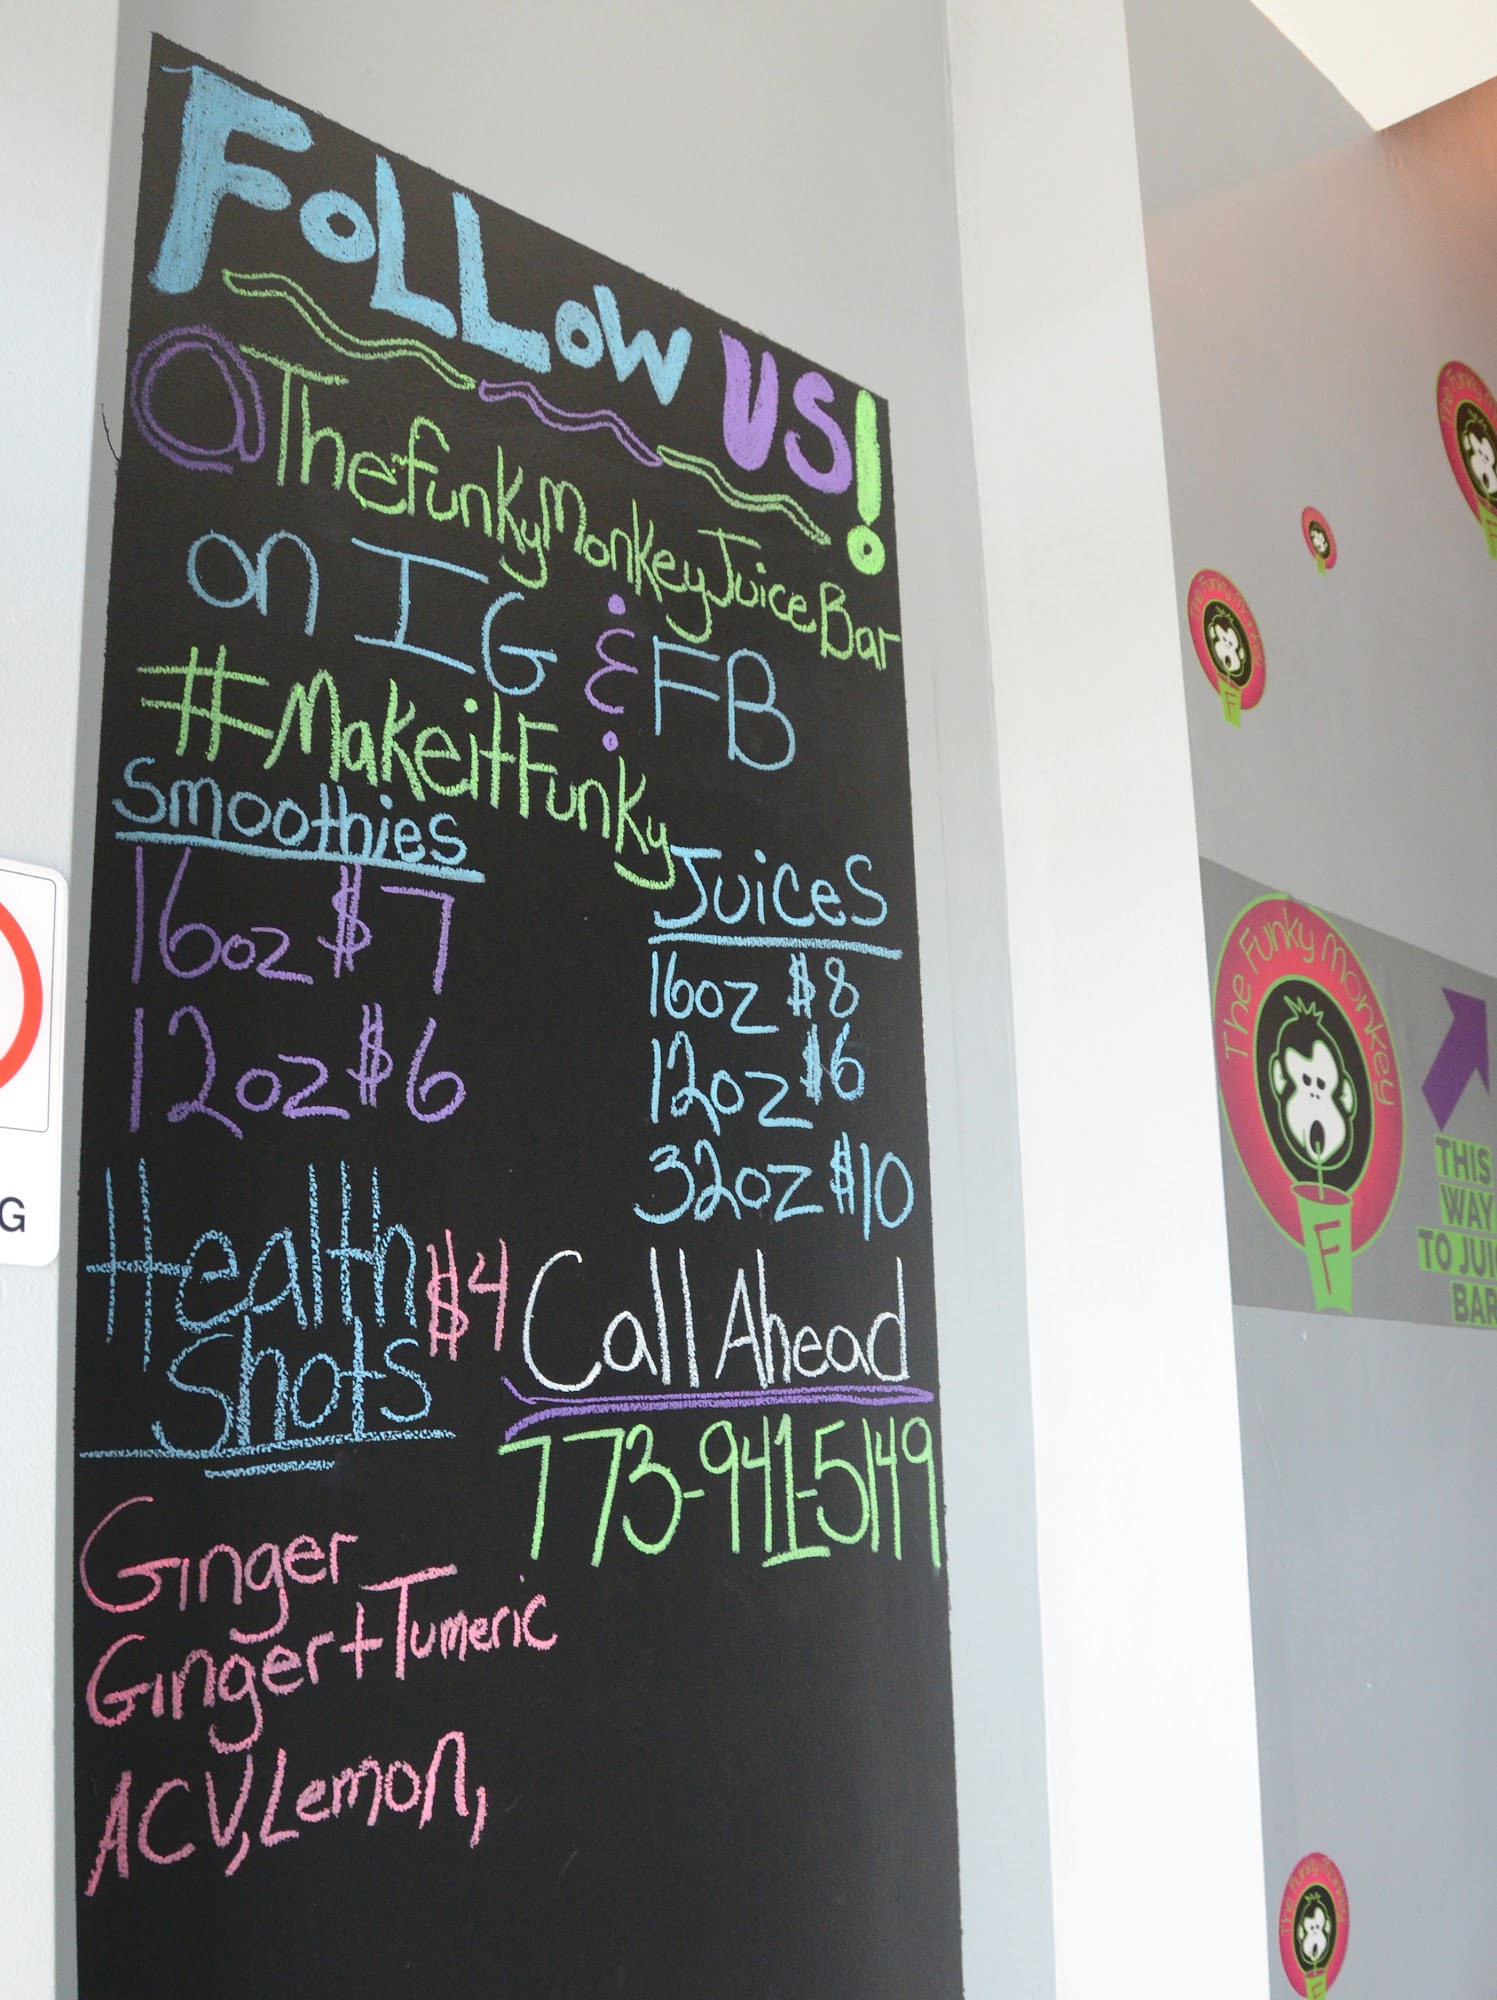 FoLLow US!
@ThefunkyMonkeyJuiceBar
on IG & FB
#MakeitFunky
Smoothies
16oz $7
12oz $6
Juices
16oz $8
12oz $6
32oz $10
Health Shots $4
Ginger
Ginger+Tumeric
ACV, Lemon,
Call Ahead
773-941-5149
G
The Funky Monkey
F
THIS
WAY
TO JUI
BAR
The Funky Monkey
F
The Funky M
The Funky Monkey
F